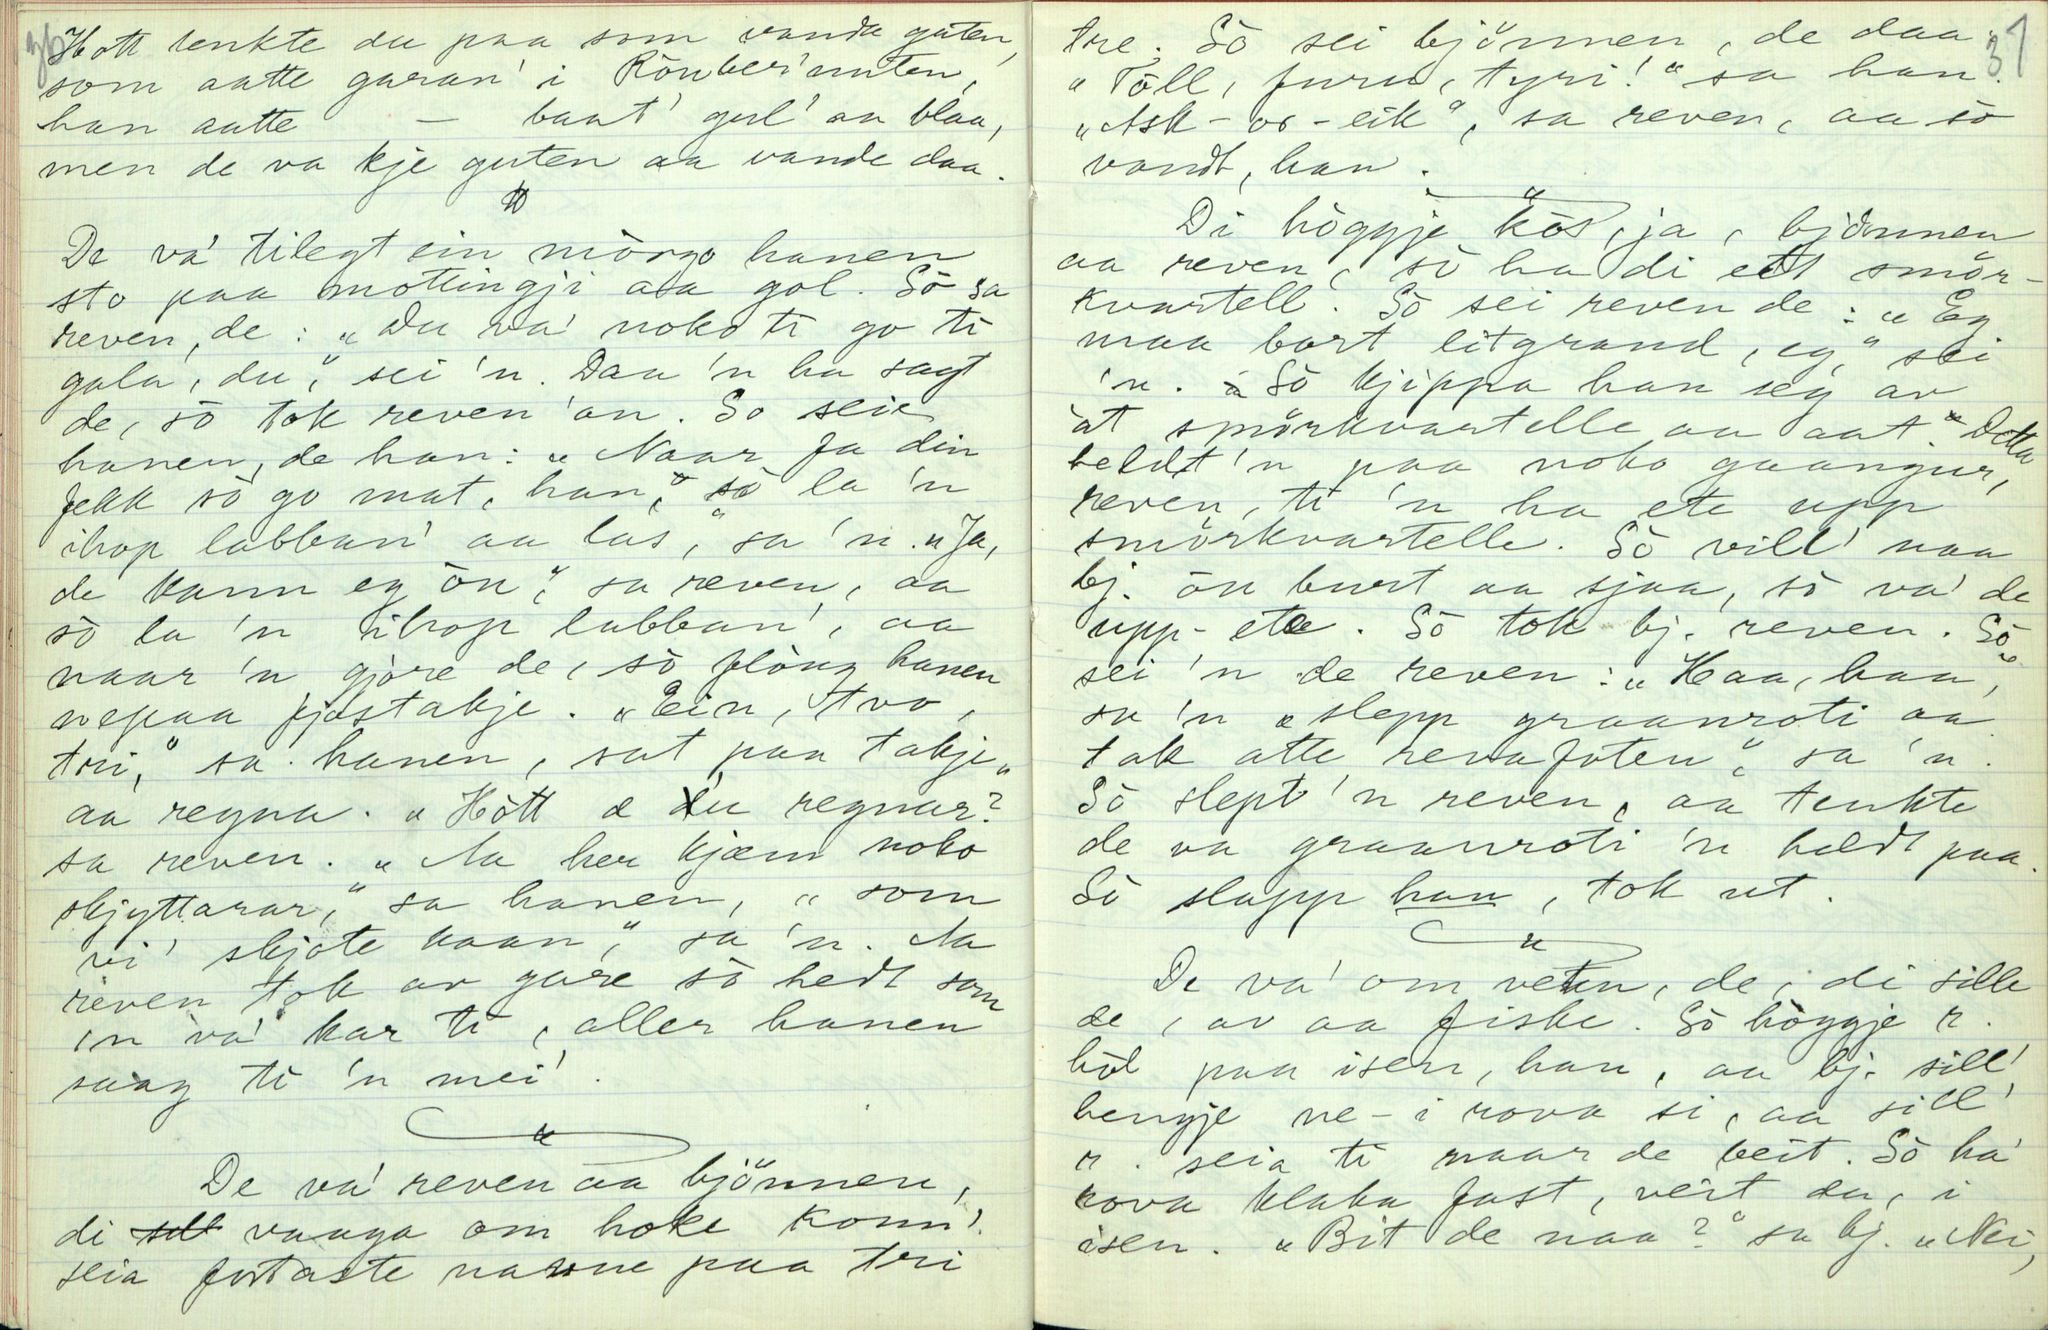 Hott tenkte du paa som vande guten,
som aatte garan' i Rönber'nuten,
han aatte — baat' gul' aa blaa,
men de va kje guten aa vande daa.
De va' tilegt ein mòrgo hanen
sto paa mottingji aa gol. Sò sa
reven, de: „Du va' noko ti go ti
gala, du," sei 'n. Daa 'n ha sagt
de, sò tok reven 'an. So seie
hanen, de han: „Naar fa din
fekk sò go mat, han," sò la 'n
ihop labban' aa las," sa 'n. „Ja,
de kann eg òn," sa reven, aa
sò la 'n ihop labban', aa
naar 'n gjòre de, sò flòug hanen
nepaa fjøstakje. „Ein, tvo,
tri," sa hanen, sat paa takje
aa regna. „Hòtt æ du regnar?"
sa reven. „Aa her kjæm noko
skjyttarar," sa hanen, „som
vi' skjòte kaan," sa 'n. Aa
reven tok av gare sò hedt som
'n va' kar ti, aller hanen
saag ti 'n mei'.
De va' reven aa bjönnen,
di vaaga om hoke konn'
seia fortaste namne paa tri
31
tre. Sò sei bjönnen, de daa:
„Tòll, furu, tyri!" sa han.
„Ask-or-eik", sa reven, aa sò
vandt, han.
Di hòggje kòs, ja, bjönnen
aa reven, sò ha di ett smör-
kvartell. Sò sei reven de: „Eg
maa bort litgrand, eg," sei
'n. Sò kjippa han seg av
àt smörkvartelle aa aat. Detta
heldt 'n paa noko gaangur,
reven, ti 'n ha ete upp
smörkvartelle. Sò vill' naa
bj. òn burt aa sjaa, sò va' de
upp-ete. Sò tok bj. reven. Sò
sei 'n de reven: „Haa, haa,"
sa 'n „slepp graanroti aa
tak atte revafoten", sa 'n.
Sò slept 'n reven, aa tenkte
de va graanroti 'n heldt paa.
Sò slapp han, tok ut.
De va' om vetten, de, di sille
de, av aa fiske. Sò hòggje r.
hòl paa isen, han, aa bj. sill'
hengje ne-i rova si, aa sill'
r. seia ti naar de beit. Sò ha'
rova klaka fast, veit du, i
isen. „Bit de naa?" sa bj. „Nei,